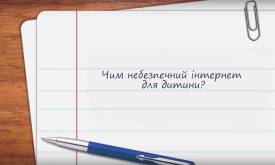 Чим небезпечний інтернет
для дитини?